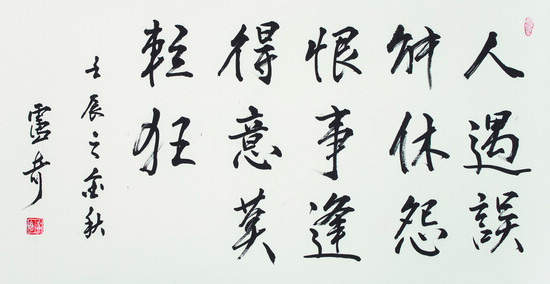 人遇誤
解休怨
恨事逢
得意莫
輕狂
壬辰之金秋